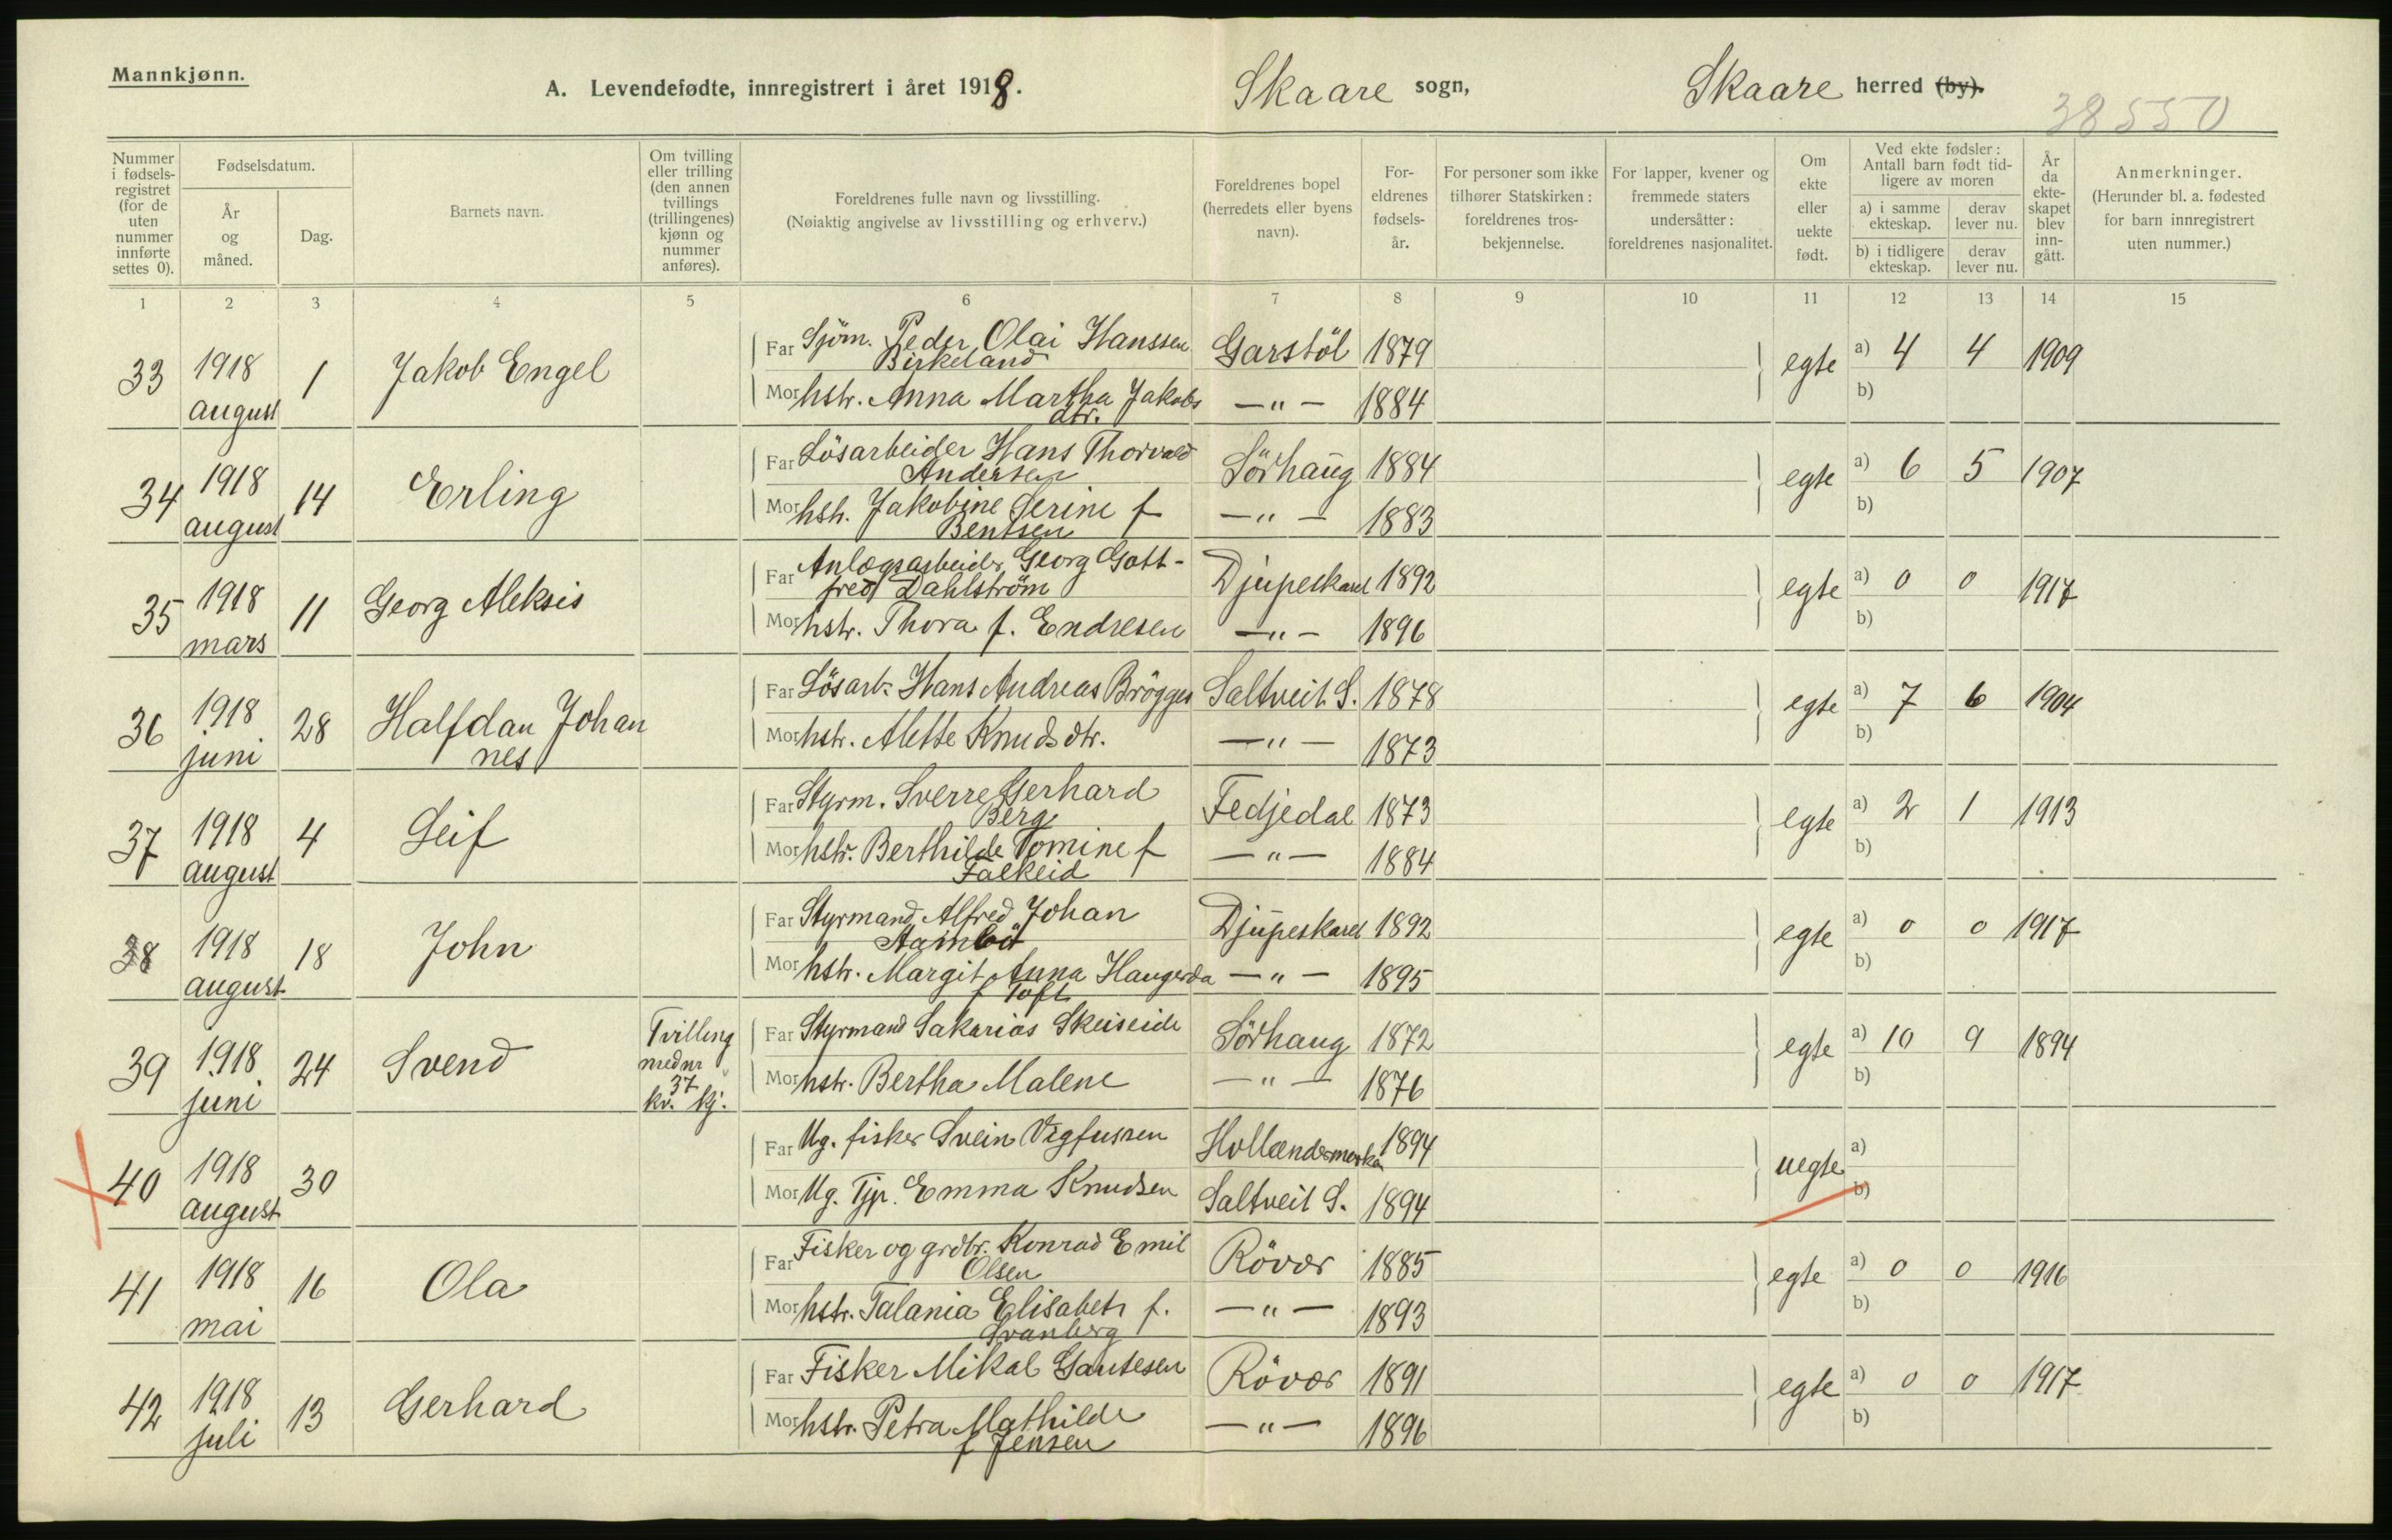 Mannkjønn.
A. Levendefødte, innregistrert i året 1918.
Skaare sogn,
Skaare herred (by).
38550
Nummer i fødsels-registret (for de uten nummer innførte settes 0).
Fødselsdatum.
År og måned.
Dag.
Barnets navn.
Om tvilling eller trilling (den annen tvillings (trillingenes) kjønn og nummer anføres).
Foreldrenes fulle navn og livsstilling.
(Nøiaktig angivelse av livsstilling og erhverv.)
Foreldrenes bopel (herredets eller byens navn).
For-eldrenes fødsels-år.
For personer som ikke tilhører Statskirken: foreldrenes tros-bekjennelse.
For lapper, kvener og fremmede staters undersåtter: foreldrenes nasjonalitet.
Om ekte eller uekte født.
Ved ekte fødsler: Antall barn født tid-ligere av moren
a) i samme ekteskap.
derav lever nu.
b) i tidligere ekteskap.
derav lever nu.
År da ekte-skapet blev inn-gått.
Anmerkninger.
(Herunder bl. a. fødested for barn innregistrert uten nummer.)
1 2 3 4 5 6 7 8 9 10 11 12 13 14 15
33 1918 august 1 Jakob Engel
Far Sjöm. Peder Olai Hanssen Birkeland Garstöl 1879 egte a) 4 4 1909
Mor hstr. Anna Martha Jakobs dtr. —"— 1884 b)
34 1918 august 14 Erling
Far Lösarbeider Hans Thorvald Andersen Sörhaug 1884 egte a) 6 5 1907
Mor hstr. Jakobine Serine f Bentsen —"— 1883 b)
35 1918 mars 11 Georg Aleksis
Far Anlægsarbeider Georg Gott-fred Dahlström Djupeskard 1892 egte a) 0 0 1917
Mor hstr. Thora f. Endresen —"— 1896 b)
36 1918 juni 28 Halfdan Johan nes
Far Lösarb. Hans Andreas Brögger Saltveit S. 1878 egte a) 7 6 1904
Mor hstr. Alette Knudsdtr. —"— 1873 b)
37 1918 august 4 Leif
Far Styrm. Sverre Gerhard Berg Fedjedal 1873 egte a) 2 1 1913
Mor hstr. Berthilde Tomine f Falkeid —"— 1884 b)
38 1918 august 18 John
Far Styrmand Alfred Johan Djupeskard 1892 egte a) 0 0 1917
Mor hstr. Margit Anna Haugerda f Toft —"— 1895 b)
39 1918 juni 24 Svend Tvilling med nr 37 kv. kj.
Far Styrmand Sakarias Skeiseide Sörhaug 1872 egte a) 10 9 1894
Mor hstr. Bertha Malene —"— 1876 b)
40 1918 august 30
Far Ug. fisker Svein Vigfussen 1894 uegte a)
Mor Ug. Tjp. Emma Knudsen Saltveit S. 1894 b)
41 1918 mai 16 Ola
Far Fisker og grdbr. Konrad Emil Olsen Rövær 1885 egte a) 0 0 1916
Mor hstr. Talania Elisabeth f. Svanberg —"— 1893 b)
42 1918 juli 13 Gerhard
Far Fisker Mikal Gautesen Rövær 1891 egte a) 0 0 1917
Mor hstr. Petra Mathilde f Jensen —"— 1896 b)